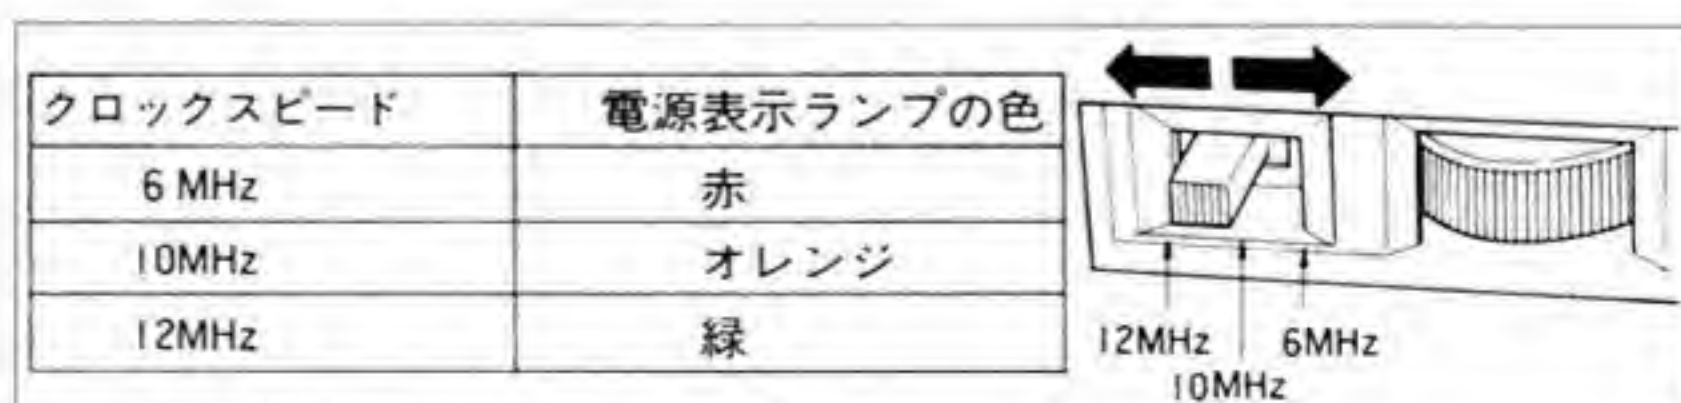 クロックスピード 電源表示ランプの色
6 MHz 赤
10MHz オレンジ
12MHz 緑
12MHz 6MHz
10MHz